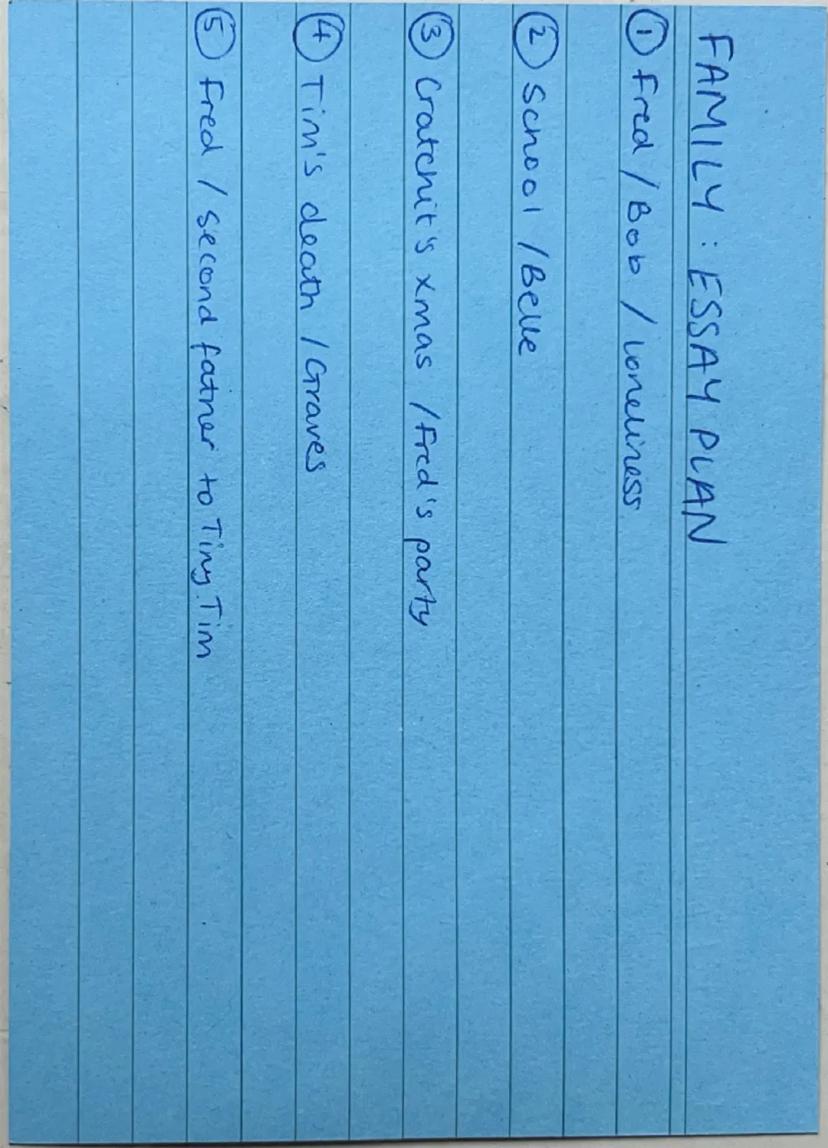 FAMILY : ESSAY PLAN
① Fred / Bob / Loneliness
② School / Belle
③ Cratchit's xmas / Fred's party
④ Tim's death / Graves
⑤ Fred / second father to Tiny Tim